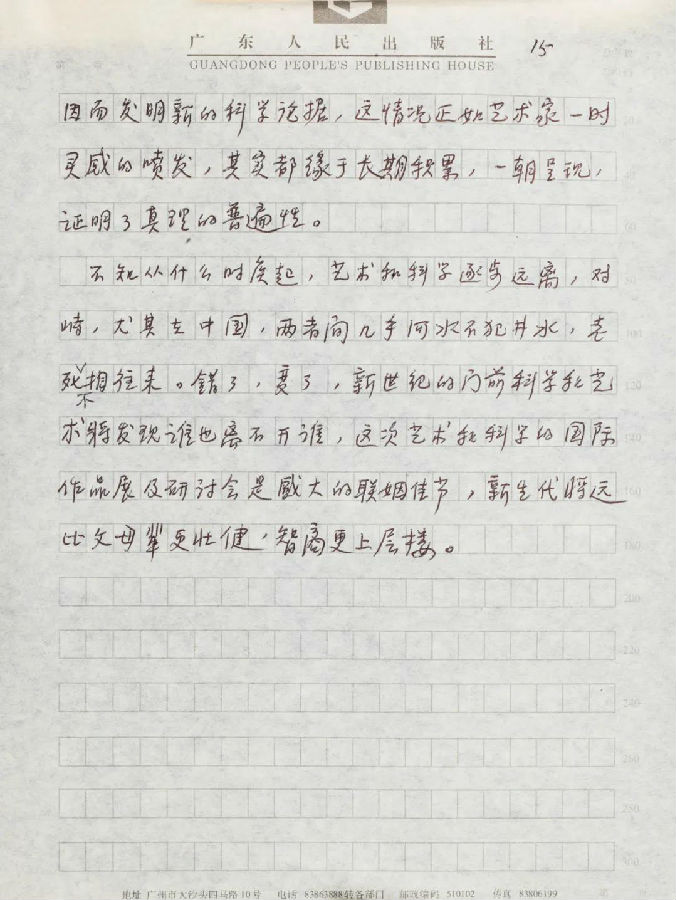 广东人民出版社
GUANGDONG PEOPLE'S PUBLISHING HOUSE
15
因而发明新的科学论据，这情况正如艺术家一时
灵感的喷发，其实都缘于长期积累，一朝呈现，
证明了真理的普遍性。
不知从什么时候起，艺术和科学逐步远离，对
峙，尤其在中国，两者间几乎河水不犯井水，老
死不相往来。错了，变了，新世纪的门前科学和艺
术将发现谁也离不开谁，这次艺术和科学的国际
作品展及研讨会是盛大的联姻佳节，新生代将远
比父母辈更壮健，智商更上层楼。
20
40
60
100
120
140
160
180
200
220
240
260
280
300
地址 广州市大沙头四马路10号 电话 83863888转各部门 邮政编码 510102 传真 83806199